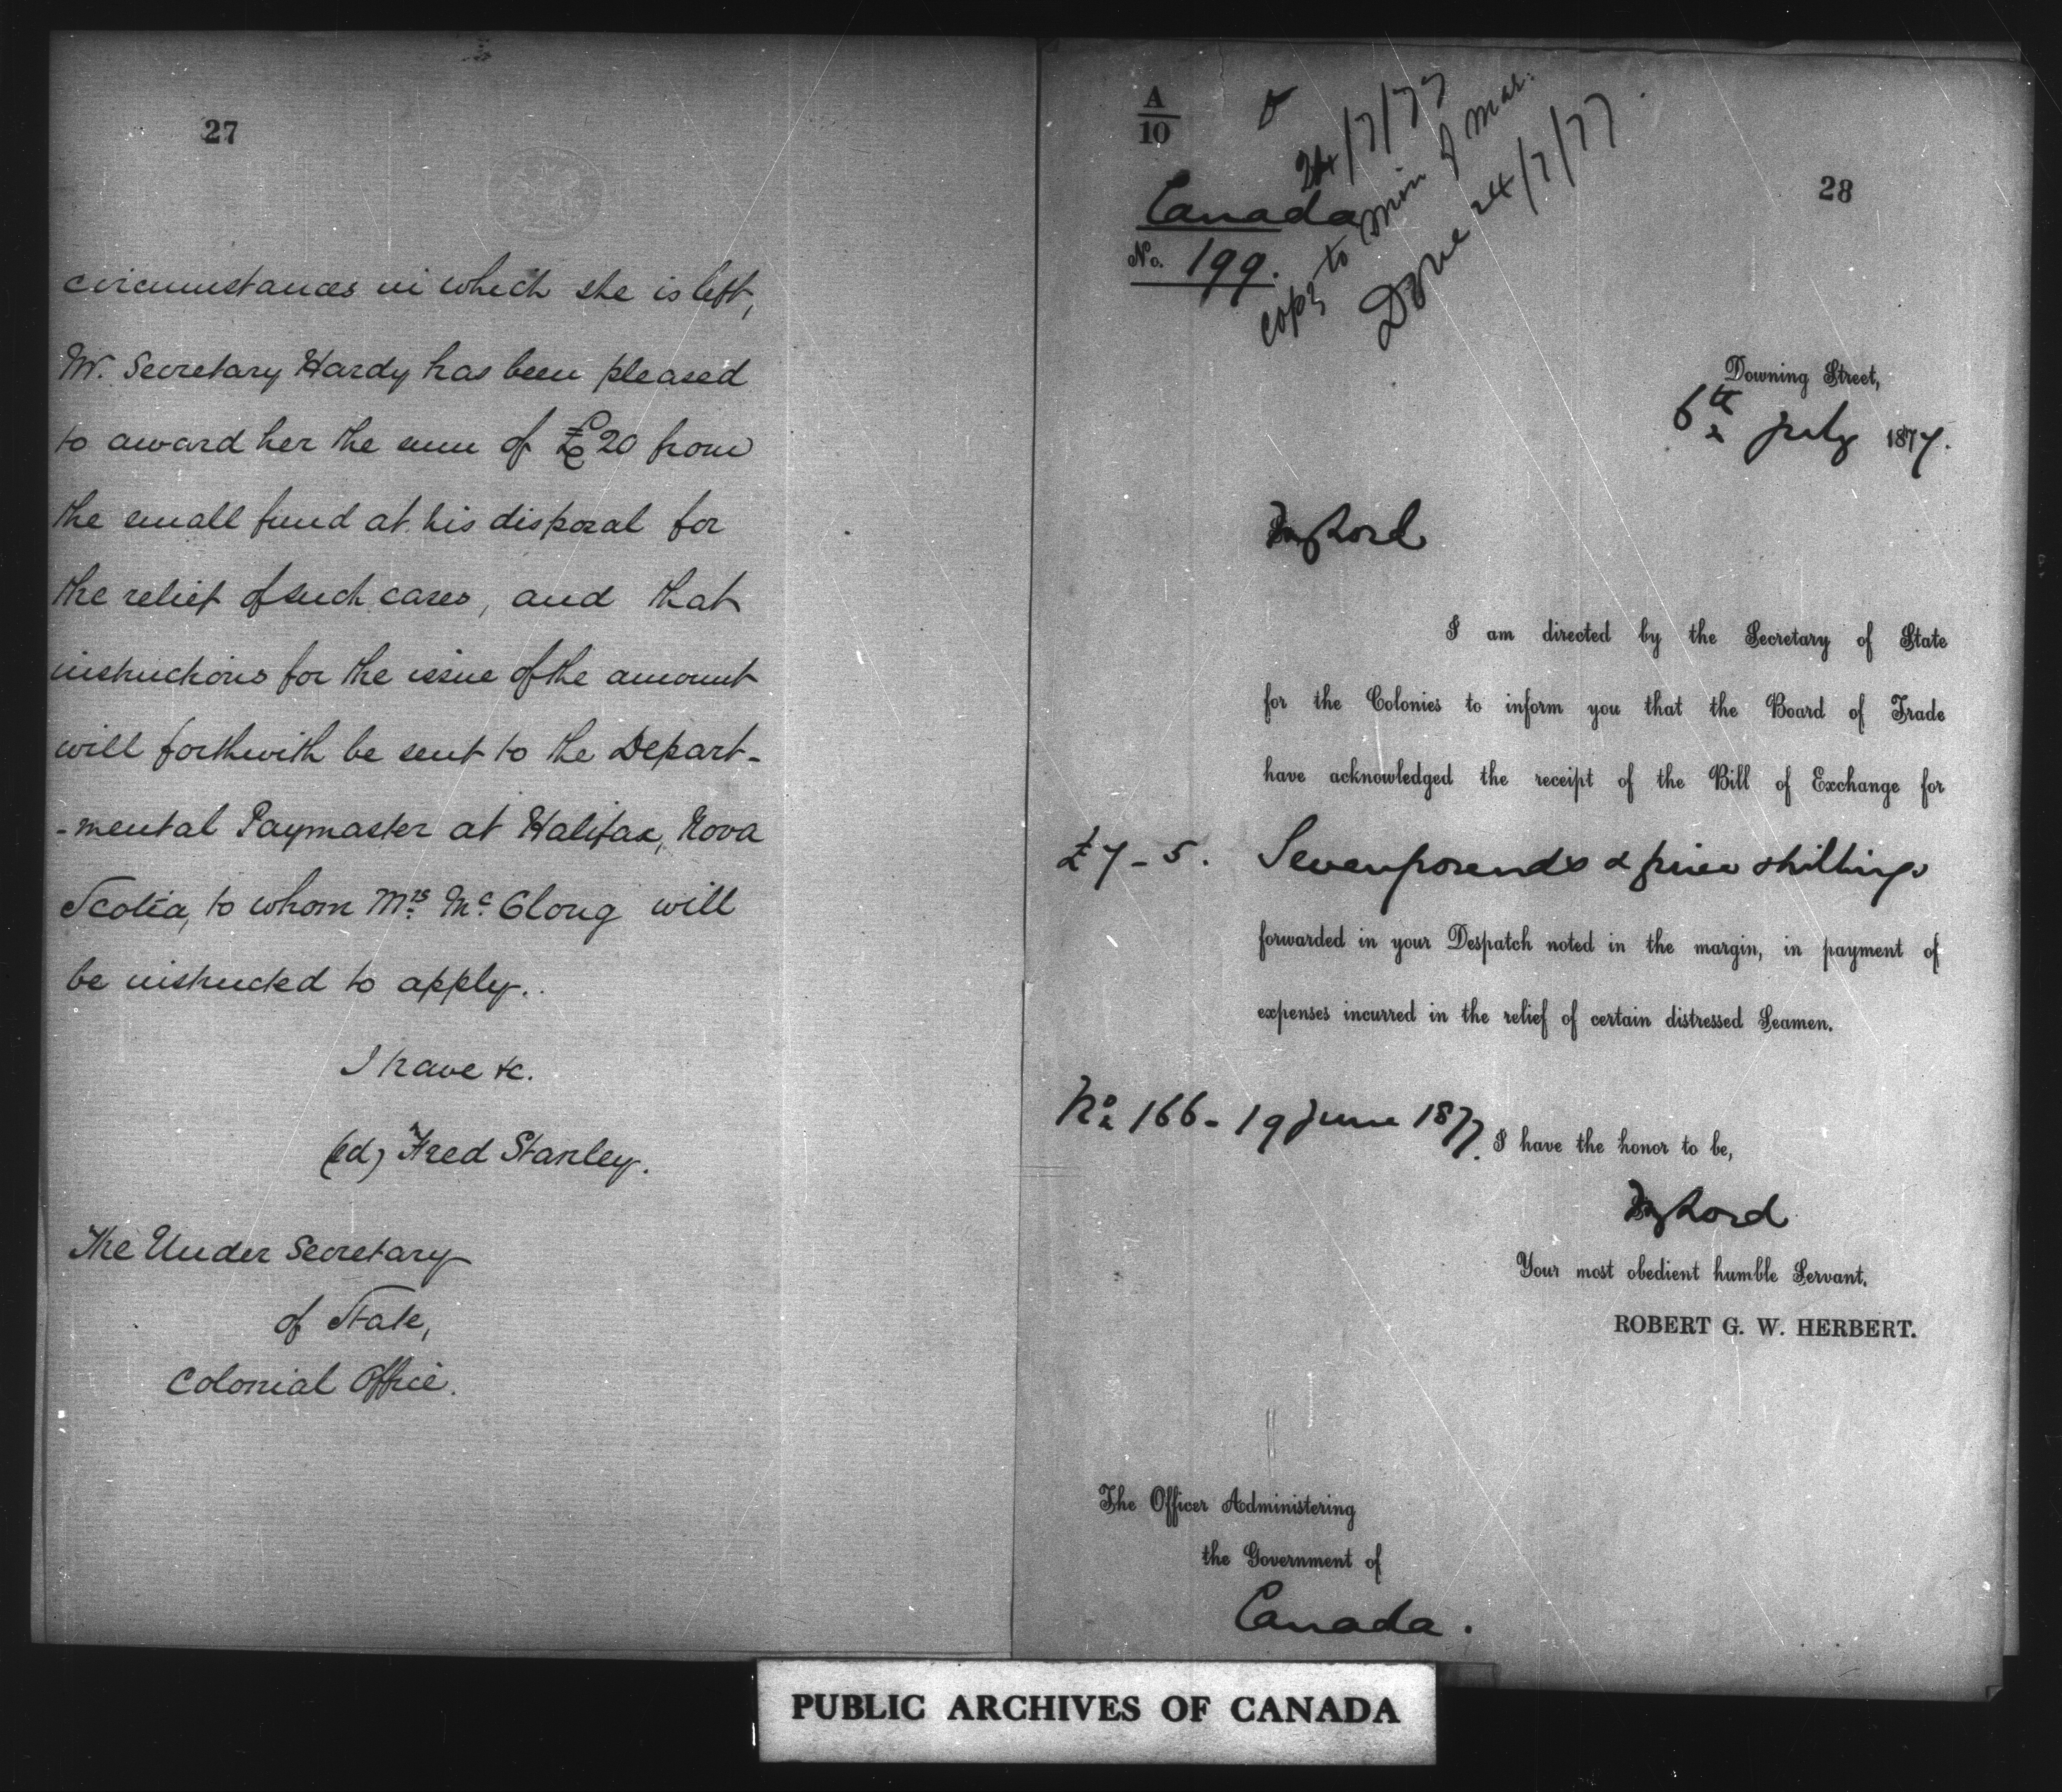 27
circumstances in which she is left,
Mr. Secretary Hardy has been pleased
to award her the sum of £20 from
the small fund at his disposal for
the relief of such cases, and that
instructions for the issue of the amount
will forthwith be sent to the Depart-
-mental Paymaster at Halifax, Nova
Scotia, to whom Mrs. Mc. Clong will
be instructed to apply.
I have &c.
(sd) Fred Stanley.
The Under Secretary
of State,
Colonial Office.
A
10
24/7/77
copy to Min of Mar.
Done 24/7/77.
28
Canada
No. 199.
Downing Street,
6th July 1877.
My Lord
I am directed by the Secretary of State
for the Colonies to inform you that the Board of Trade
have acknowledged the receipt of the Bill of Exchange for
£7-5. Seven pounds & five shillings
forwarded in your Despatch noted in the margin, in payment of
expenses incurred in the relief of certain distressed Seamen.
No. 166-19 June 1877.
I have the honor to be,
My Lord
Your most obedient humble Servant,
ROBERT G. W. HERBERT.
The Officer Administering
the Government of
Canada.
PUBLIC ARCHIVES OF CANADA